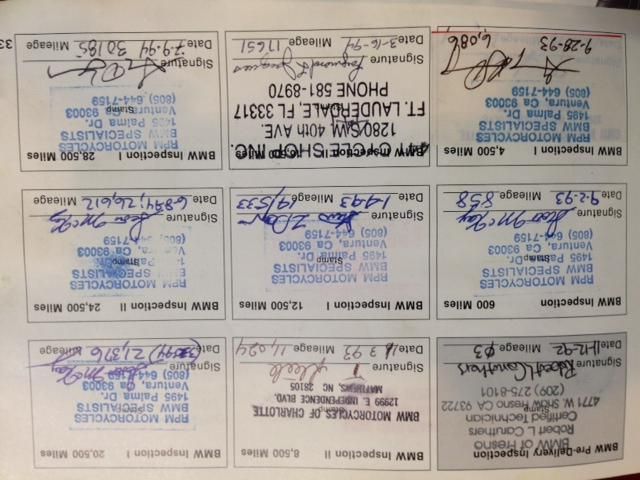 BMW Pre-Delivery Inspection
BMW of Fresno
Robert L. Caruthers
Certified Technician
Stamp
4771 W. Shaw Fresno CA 93722
(209) 275-8101
Robert Caruthers
Signature
Date 11-12-92 Mileage 03
BMW Inspection II 8,500 Miles
BMW MOTORCYCLES OF CHARLOTTE
Stamp
12999 E. INDEPENDENCE BLVD.
MATTHEWS, NC 28105
Signature
Date Mileage 11,024
BMW Inspection I 20,500 Miles
RPM MOTORCYCLES
BMW SPECIALISTS
1495 Palma Dr.
Stamp
Ventura, Ca 93003
(805) 644-7159
Signature
Date Mileage 21,376
BMW Inspection 600 Miles
RPM MOTORCYCLES
BMW SPECIALISTS
1495 Palma Dr.
Stamp
Ventura, Ca 93003
(805) 644-7159
Signature
Date 9-2-93 Mileage 858
BMW Inspection I 12,500 Miles
RPM MOTORCYCLES
BMW SPECIALISTS
1495 Palma Dr.
Stamp
Ventura, Ca 93003
(805) 644-7159
Signature
Date Mileage
BMW Inspection II 24,500 Miles
RPM MOTORCYCLES
BMW SPECIALISTS
Palma Dr.
Stamp
Ventura, Ca 93003
(805) 644-7159
Signature
Date Mileage 26,612
BMW Inspection I 4,500 Miles
RPM MOTORCYCLES
BMW SPECIALISTS
1495 Palma Dr.
Stamp
Ventura, Ca 93003
(805) 644-7159
Signature
9-28-93 4,086
BMW Inspection Miles
CYCLE SHOP INC.
40th AVE.
FT. LAUDERDALE, FL 33317
PHONE 581-8970
Signature
Date 3-16-94 Mileage 17651
BMW Inspection I 28,500 Miles
RPM MOTORCYCLES
BMW SPECIALISTS
1495 Palma Dr.
Stamp
Ventura, Ca 93003
(805) 644-7159
Signature
Date 7-9-94 Mileage 30185
33